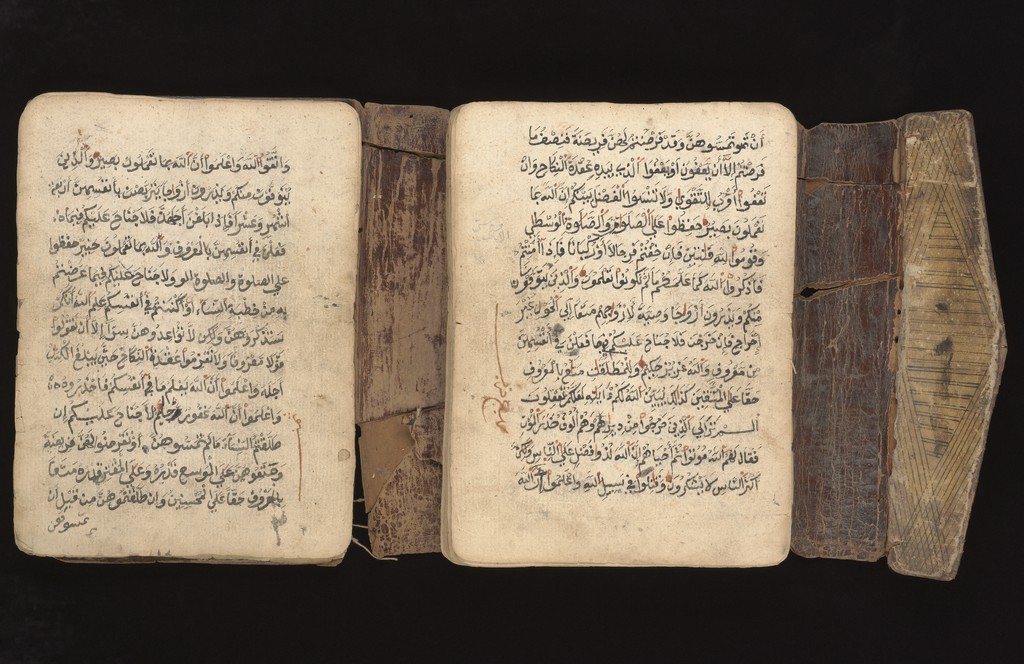 واتقوا الله واعلموا أن الله بما تعملون بصير والذين
يتوفون منكم ويذرون أزواجا يتربصن بأنفسهن أربعة
أشهر وعشرا فإذا بلغن أجلهن فلا جناح عليكم فيما
فعلن في أنفسهن بالمعروف والله بما تعملون خبير حفظوا
علي الصلوة والصلوة الو ولا جناح عليكم فيما عرضتم
به من خطبة النساء أو أكننتم في أنفسكم علم الله أنكم
ستذكرونهن ولكن لا تواعدوهن سرا إلا أن تقولوا
قولا معروفا ولا تعزموا عقدة النكاح حتي يبلغ الكتب
أجله واعلموا أن الله يعلم ما في أنفسكم فاحذروه
واعلموا أن الله غفور حليم لا جناح عليكم إن
طلقتم النساء ما لم تمسوهن أو تفرضوا لهن فريضة
ومتعوهن علي الموسع قدره وعلي المقتر قدره متعا
بالمعروف حقا علي المحسنين وإن طلقتموهن من قبل أن
تمسوهن
أن تمو تمسوهن وقد فرضتم لهن فريضة فنصف ما
فرضتم إلا أن يعفون أو يعفوا الذي بيده عقدة النكاح وأن
تعفوا أقرب للتقوي ولا تنسوا الفضل بينكم إن الله بما
تعملون بصير حفظوا علي الصلوات والصلوة الوسطي
وقوموا لله قانتين فإن خفتم فرجالا أو ركبانا فإذا أمنتم
فاذكروا الله كما علمكم ما لم تكونوا تعلمون والذين يتوفون
منكم ويذرون أزواجا وصية لأزواجهم متعا إلي الحول غير
إخراج فإن خرجن فلا جناح عليكم فيما فعلن في أنفسهن
من معروف والله عزيز حكيم وللمطلقات متاع بالمعروف
حقا علي المتقين كذلك يبين الله لكم آياته لعلكم تعقلون
ألم تر إلي الذين خرجوا من ديارهم وهم ألوف حذر الموت
فقال لهم الله موتوا ثم أحياهم إن الله لذو فضل علي الناس ولكن
أكثر الناس لا يشكرون وقتلوا في سبيل الله واعلموا أن الله